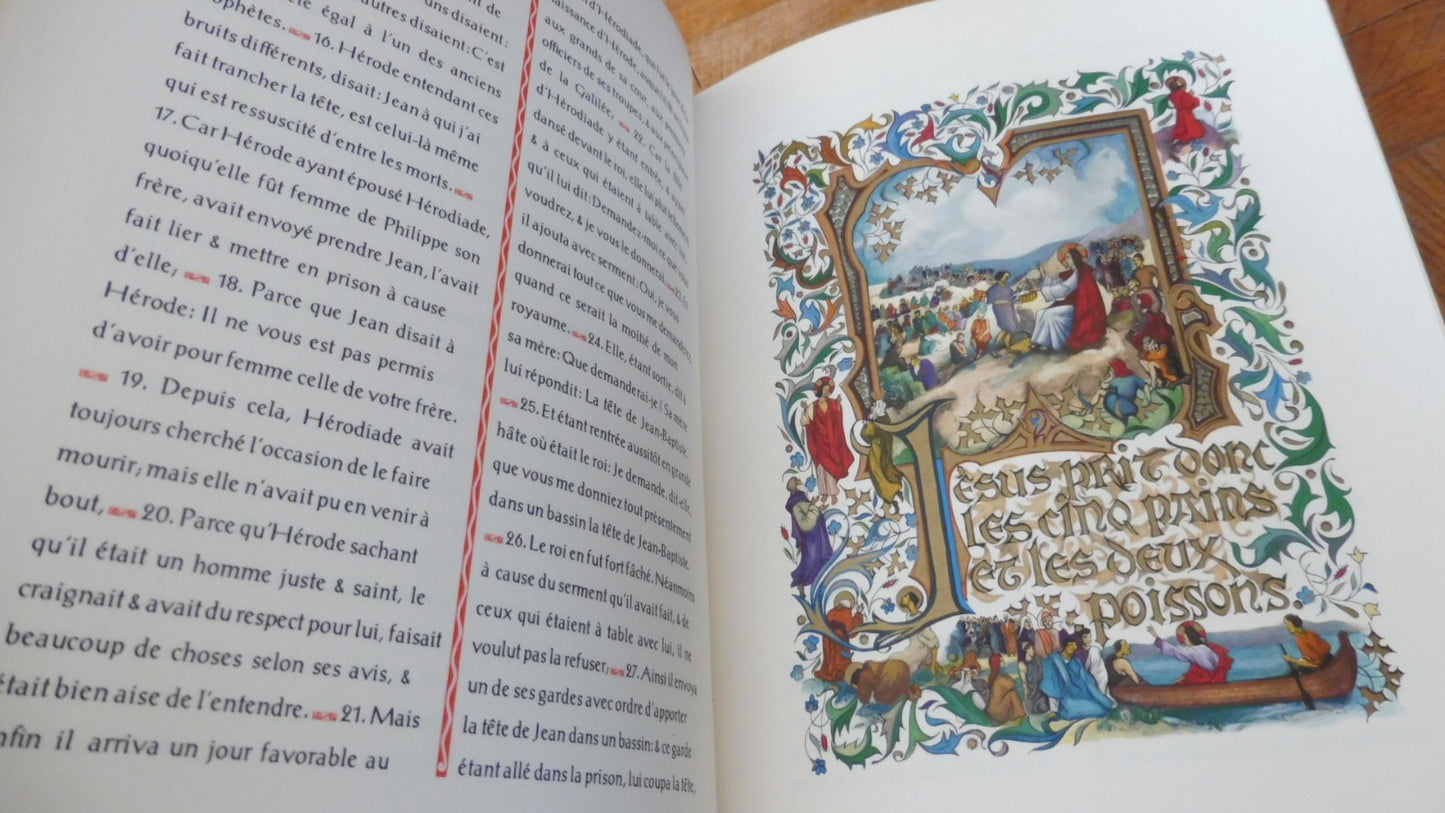 uns disaient:
autres disaient: C'est
égal à l'un des anciens
prophètes. 16. Hérode entendant ces
bruits différents, disait: Jean à qui j'ai
fait trancher la tête, est celui-là même
qui est ressuscité d'entre les morts.
17. Car Hérode ayant épousé Hérodiade,
quoiqu'elle fût femme de Philippe son
frère, avait envoyé prendre Jean, l'avait
fait lier & mettre en prison à cause
d'elle, 18. Parce que Jean disait à
Hérode: Il ne vous est pas permis
d'avoir pour femme celle de votre frère.
19. Depuis cela, Hérodiade avait
toujours cherché l'occasion de le faire
mourir; mais elle n'avait pu en venir à
bout, 20. Parce qu'Hérode sachant
qu'il était un homme juste & saint, le
craignait & avait du respect pour lui, faisait
beaucoup de choses selon ses avis, &
était bien aise de l'entendre. 21. Mais
enfin il arriva un jour favorable au
naissance d'Hérode, auquel il
aux grands de sa cour, aux premiers
officiers de ses troupes, & aux principaux
de la Galilée, 22. Car la fille
d'Hérodiade y étant entrée, & ayant
dansé devant le roi, elle lui plut tellement
& à ceux qui étaient à table avec lui,
qu'il lui dit: Demandez-moi ce que vous
voudrez, & je vous le donnerai. 23. Et
il ajouta avec serment: Oui, je vous
donnerai tout ce que vous me demanderez,
quand ce serait la moitié de mon
royaume. 24. Elle, étant sortie, dit à
sa mère: Que demanderai-je? Sa mère
lui répondit: La tête de Jean-Baptiste.
25. Et étant rentrée aussitôt en grande
hâte où était le roi: Je demande, dit-elle,
que vous me donniez tout présentement
dans un bassin la tête de Jean-Baptiste.
26. Le roi en fut fort fâché. Néanmoins
à cause du serment qu'il avait fait, & de
ceux qui étaient à table avec lui, il ne
voulut pas la refuser; 27. Ainsi il envoya
un de ses gardes avec ordre d'apporter
la tête de Jean dans un bassin: & ce garde
étant allé dans la prison, lui coupa la tête,
Jesus prit donc
les cinq pains
et les deux
poissons.